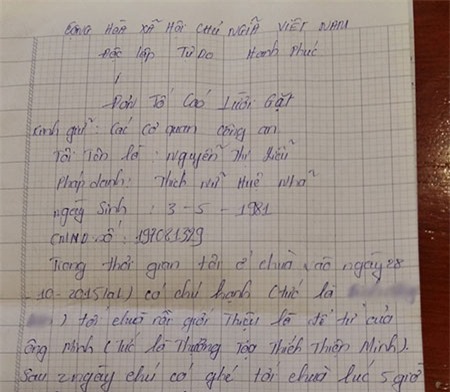 CỘNG HOÀ XÃ HỘI CHỦ NGHĨA VIỆT NAM
Độc lập Tự Do Hạnh Phúc
Đơn Tố Cáo Lười Gạt
Kính gửi: Các cơ quan công an
Tôi Tên là: Nguyễn Thị
Pháp danh: Thích Nữ Huệ Nhẫ
ngày Sinh : 3-5-1981
CMND số: 197081379
Trong thời gian tôi ở chùa vào ngày 28
-10-2015(al) có chú hạnh (tức là
) tới chùa rồi giới Thiệu là đệ tử của
Ông Minh (tức là Thượng Tọa Thích Thiện Minh).
Sau 2 ngày chú có ghé tới chùa lúc 5 giờ